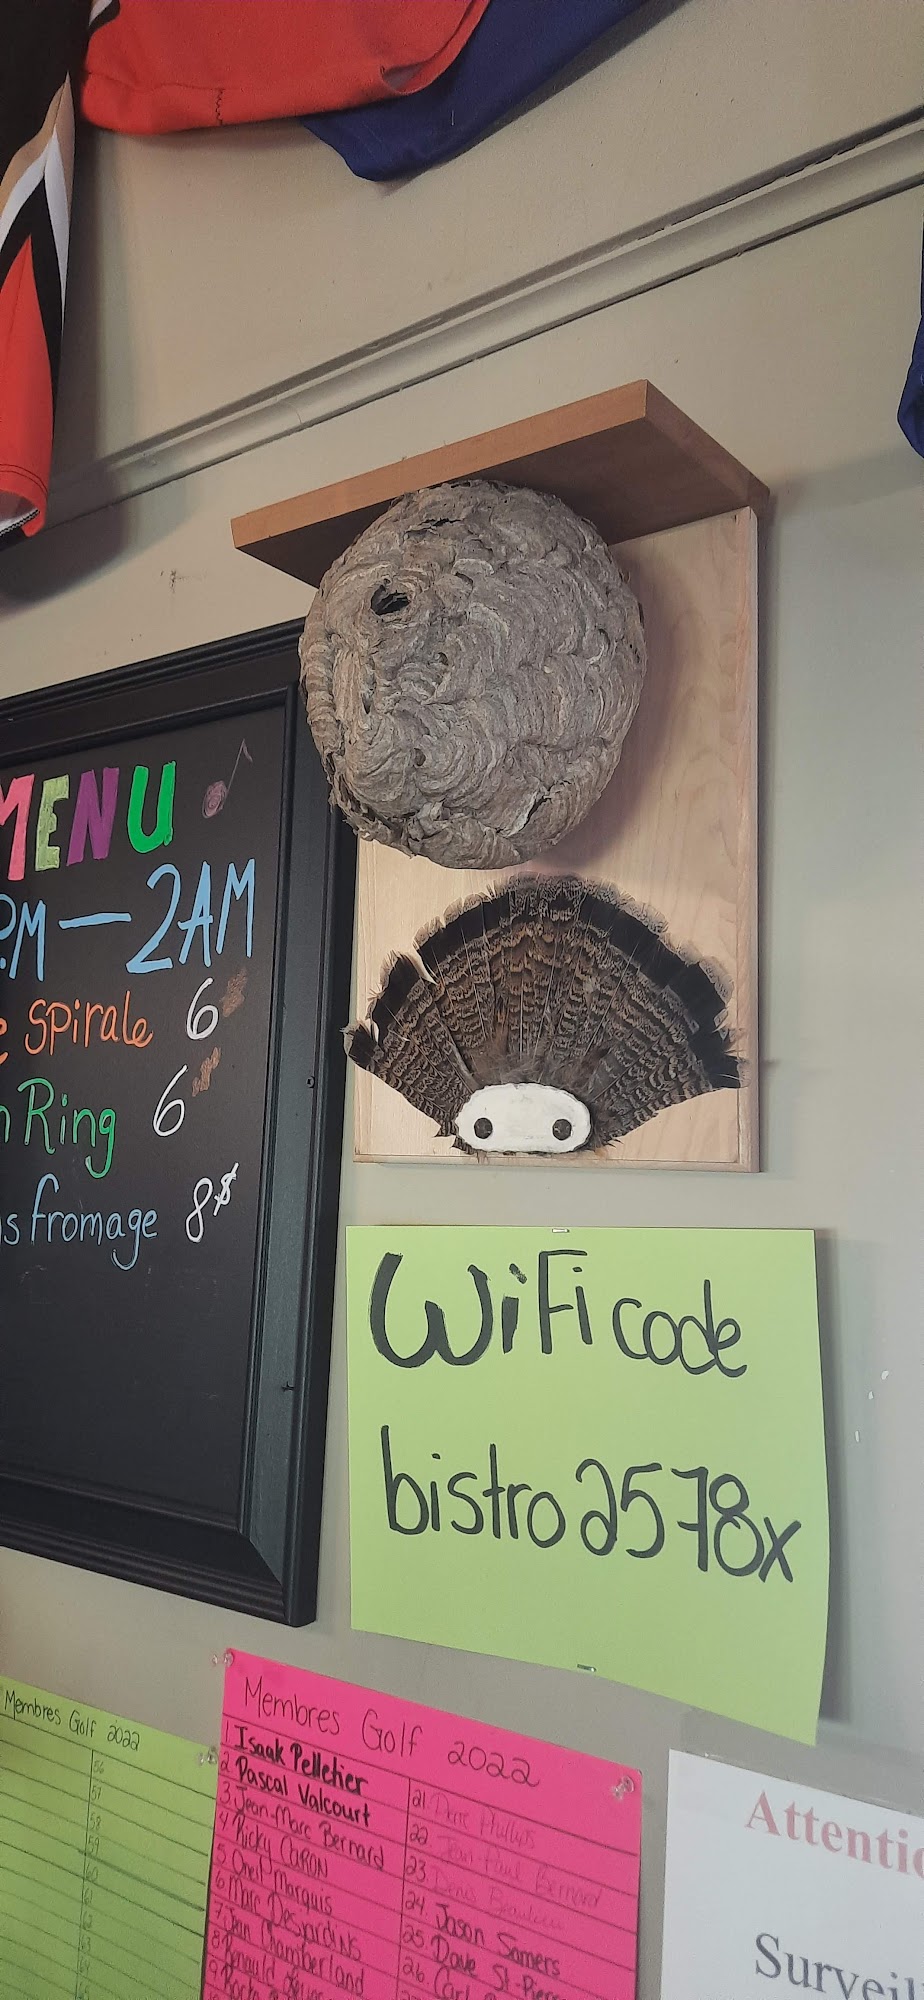 MENU
PM — 2AM
spirale 6
Ring 6
fromage 8$
WiFi code
bistro2578x
Membres Golf 2022
56
57
58
59
60
61
62
63
64
Membres Golf 2022
1 Isaak Pelletier
2 Pascal Valcourt
3 Jean-Marc Bernard
4 Ricky CARON
5 Marquis
6 Marc Desjardins
7 Jean Chamberland
8 Renauld
9
21. Phillips
22. Jean-Paul Bernard
23. Denis Beaulieu
24. Jason Somers
25. Dave St-Pierre
26. Carl
Attentio
Surveil